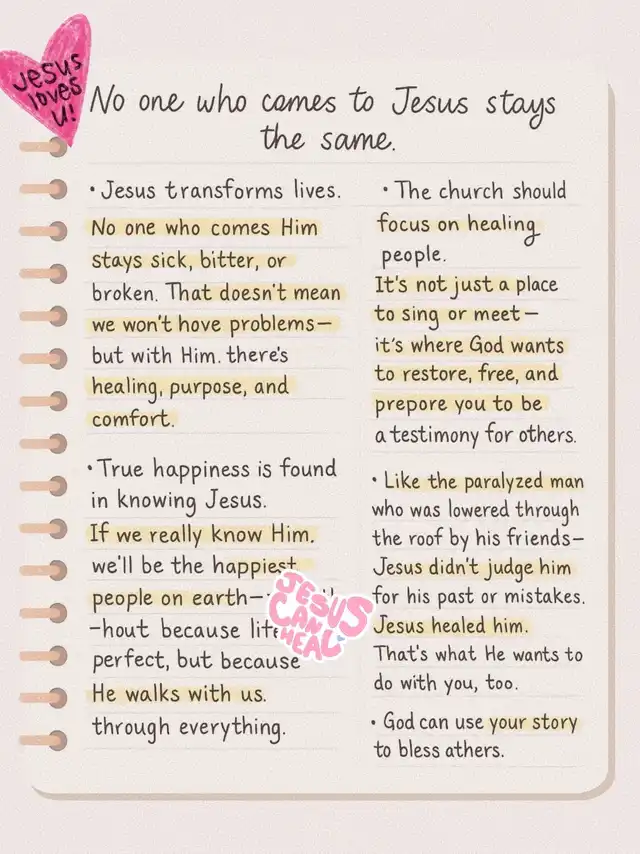 Jesus
loves
u!
No one who comes to Jesus stays
the same.
• Jesus transforms lives.
No one who comes Him
stays sick, bitter, or
broken. That doesn't mean
we won't hove problems—
but with Him. there's
healing, purpose, and
comfort.
• True happiness is found
in knowing Jesus.
If we really know Him.
we'll be the happiest
people on earth—
-hout because life
perfect, but because
He walks with us.
through everything.
JESUS
CAN
HEAL
• The church should
focus on healing
people.
It's not just a place
to sing or meet—
it's where God wants
to restore, free, and
prepore you to be
a testimony for others.
• Like the paralyzed man
who was lowered through
the roof by his friends—
Jesus didn't judge him
for his past or mistakes.
Jesus healed him.
That's what He wants to
do with you, too.
• God can use your story
to bless athers.